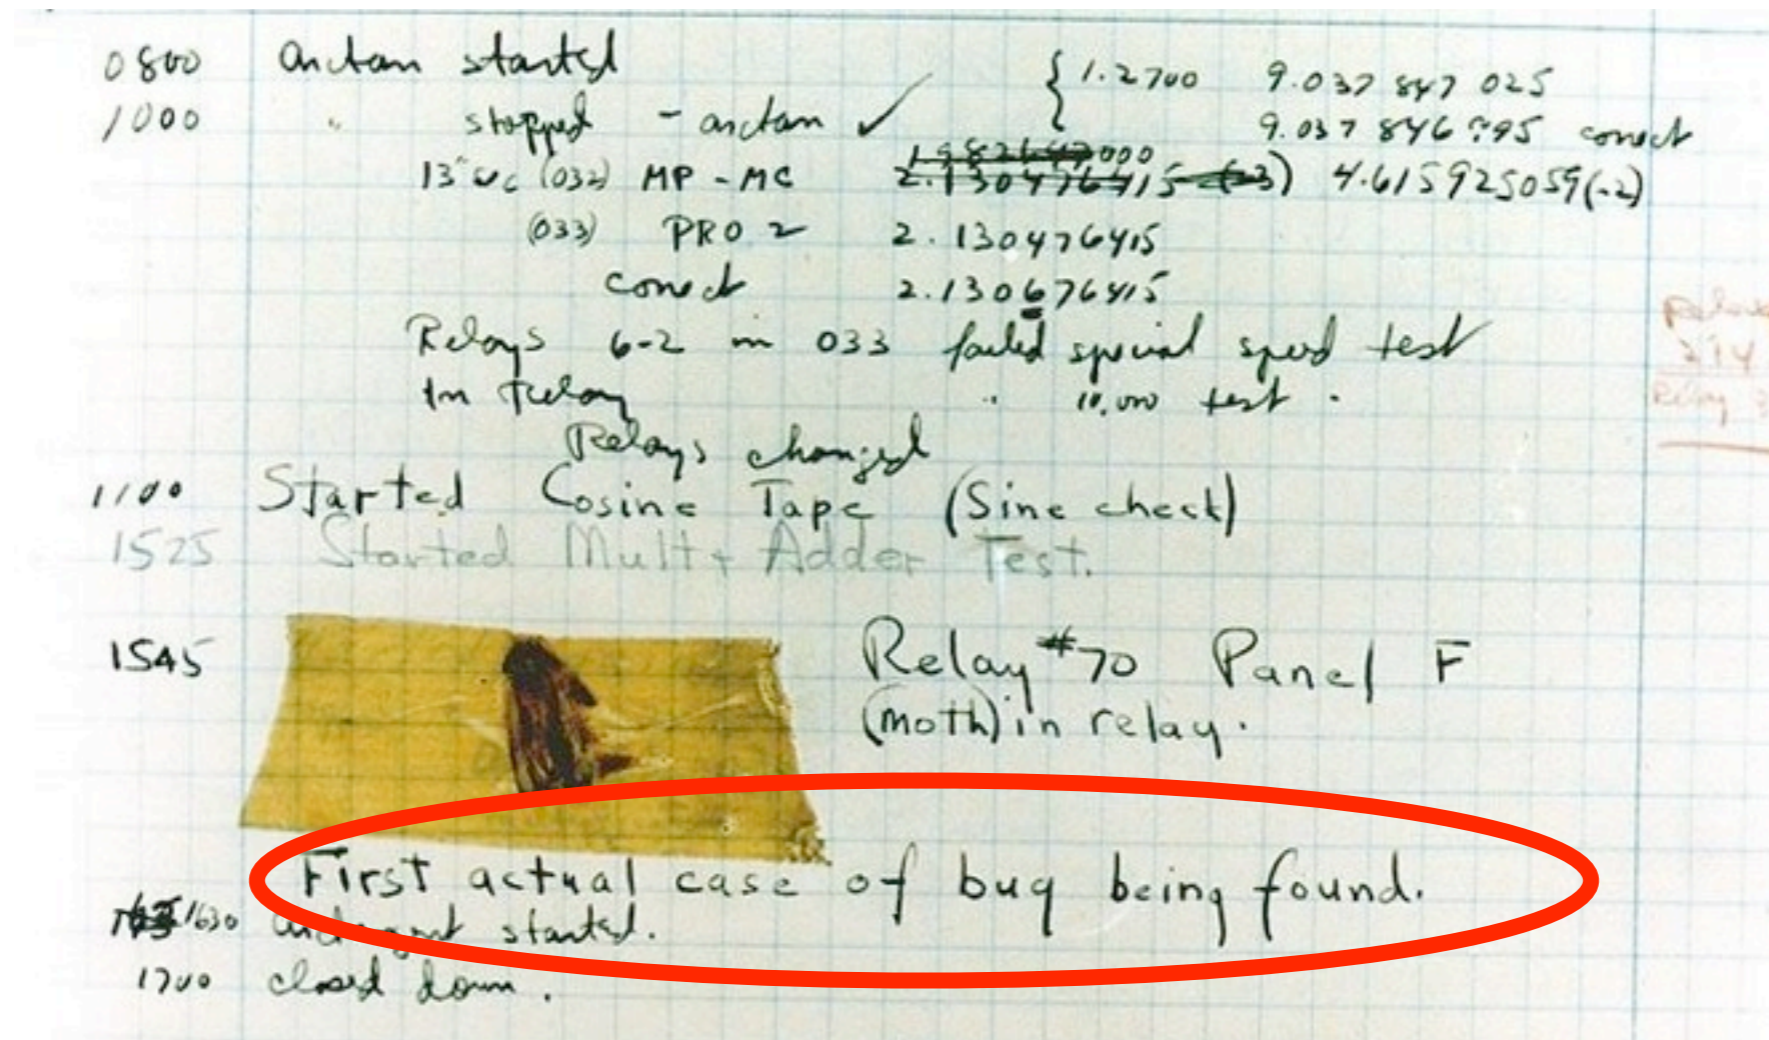 0800 arctan started { 1.2700 9.037 847 025
1000 " stopped - arctan ✓ 9.037 846 995 correct
1.982647000
13" uc (032) MP - MC 2.130476415 (-3) 4.615925059(-2)
(033) PRO 2 2.130476415
correct 2.130676415
Relays 6-2 in 033 failed special speed test
In relay " 10,000 test .
Relay
214
Relay 3
Relays changed
1100 Started Cosine Tape (Sine check)
1525 Started Mult + Adder Test.
1545 Relay #70 Panel F
(moth) in relay.
First actual case of bug being found.
1630 arctangent started.
1700 closed down.